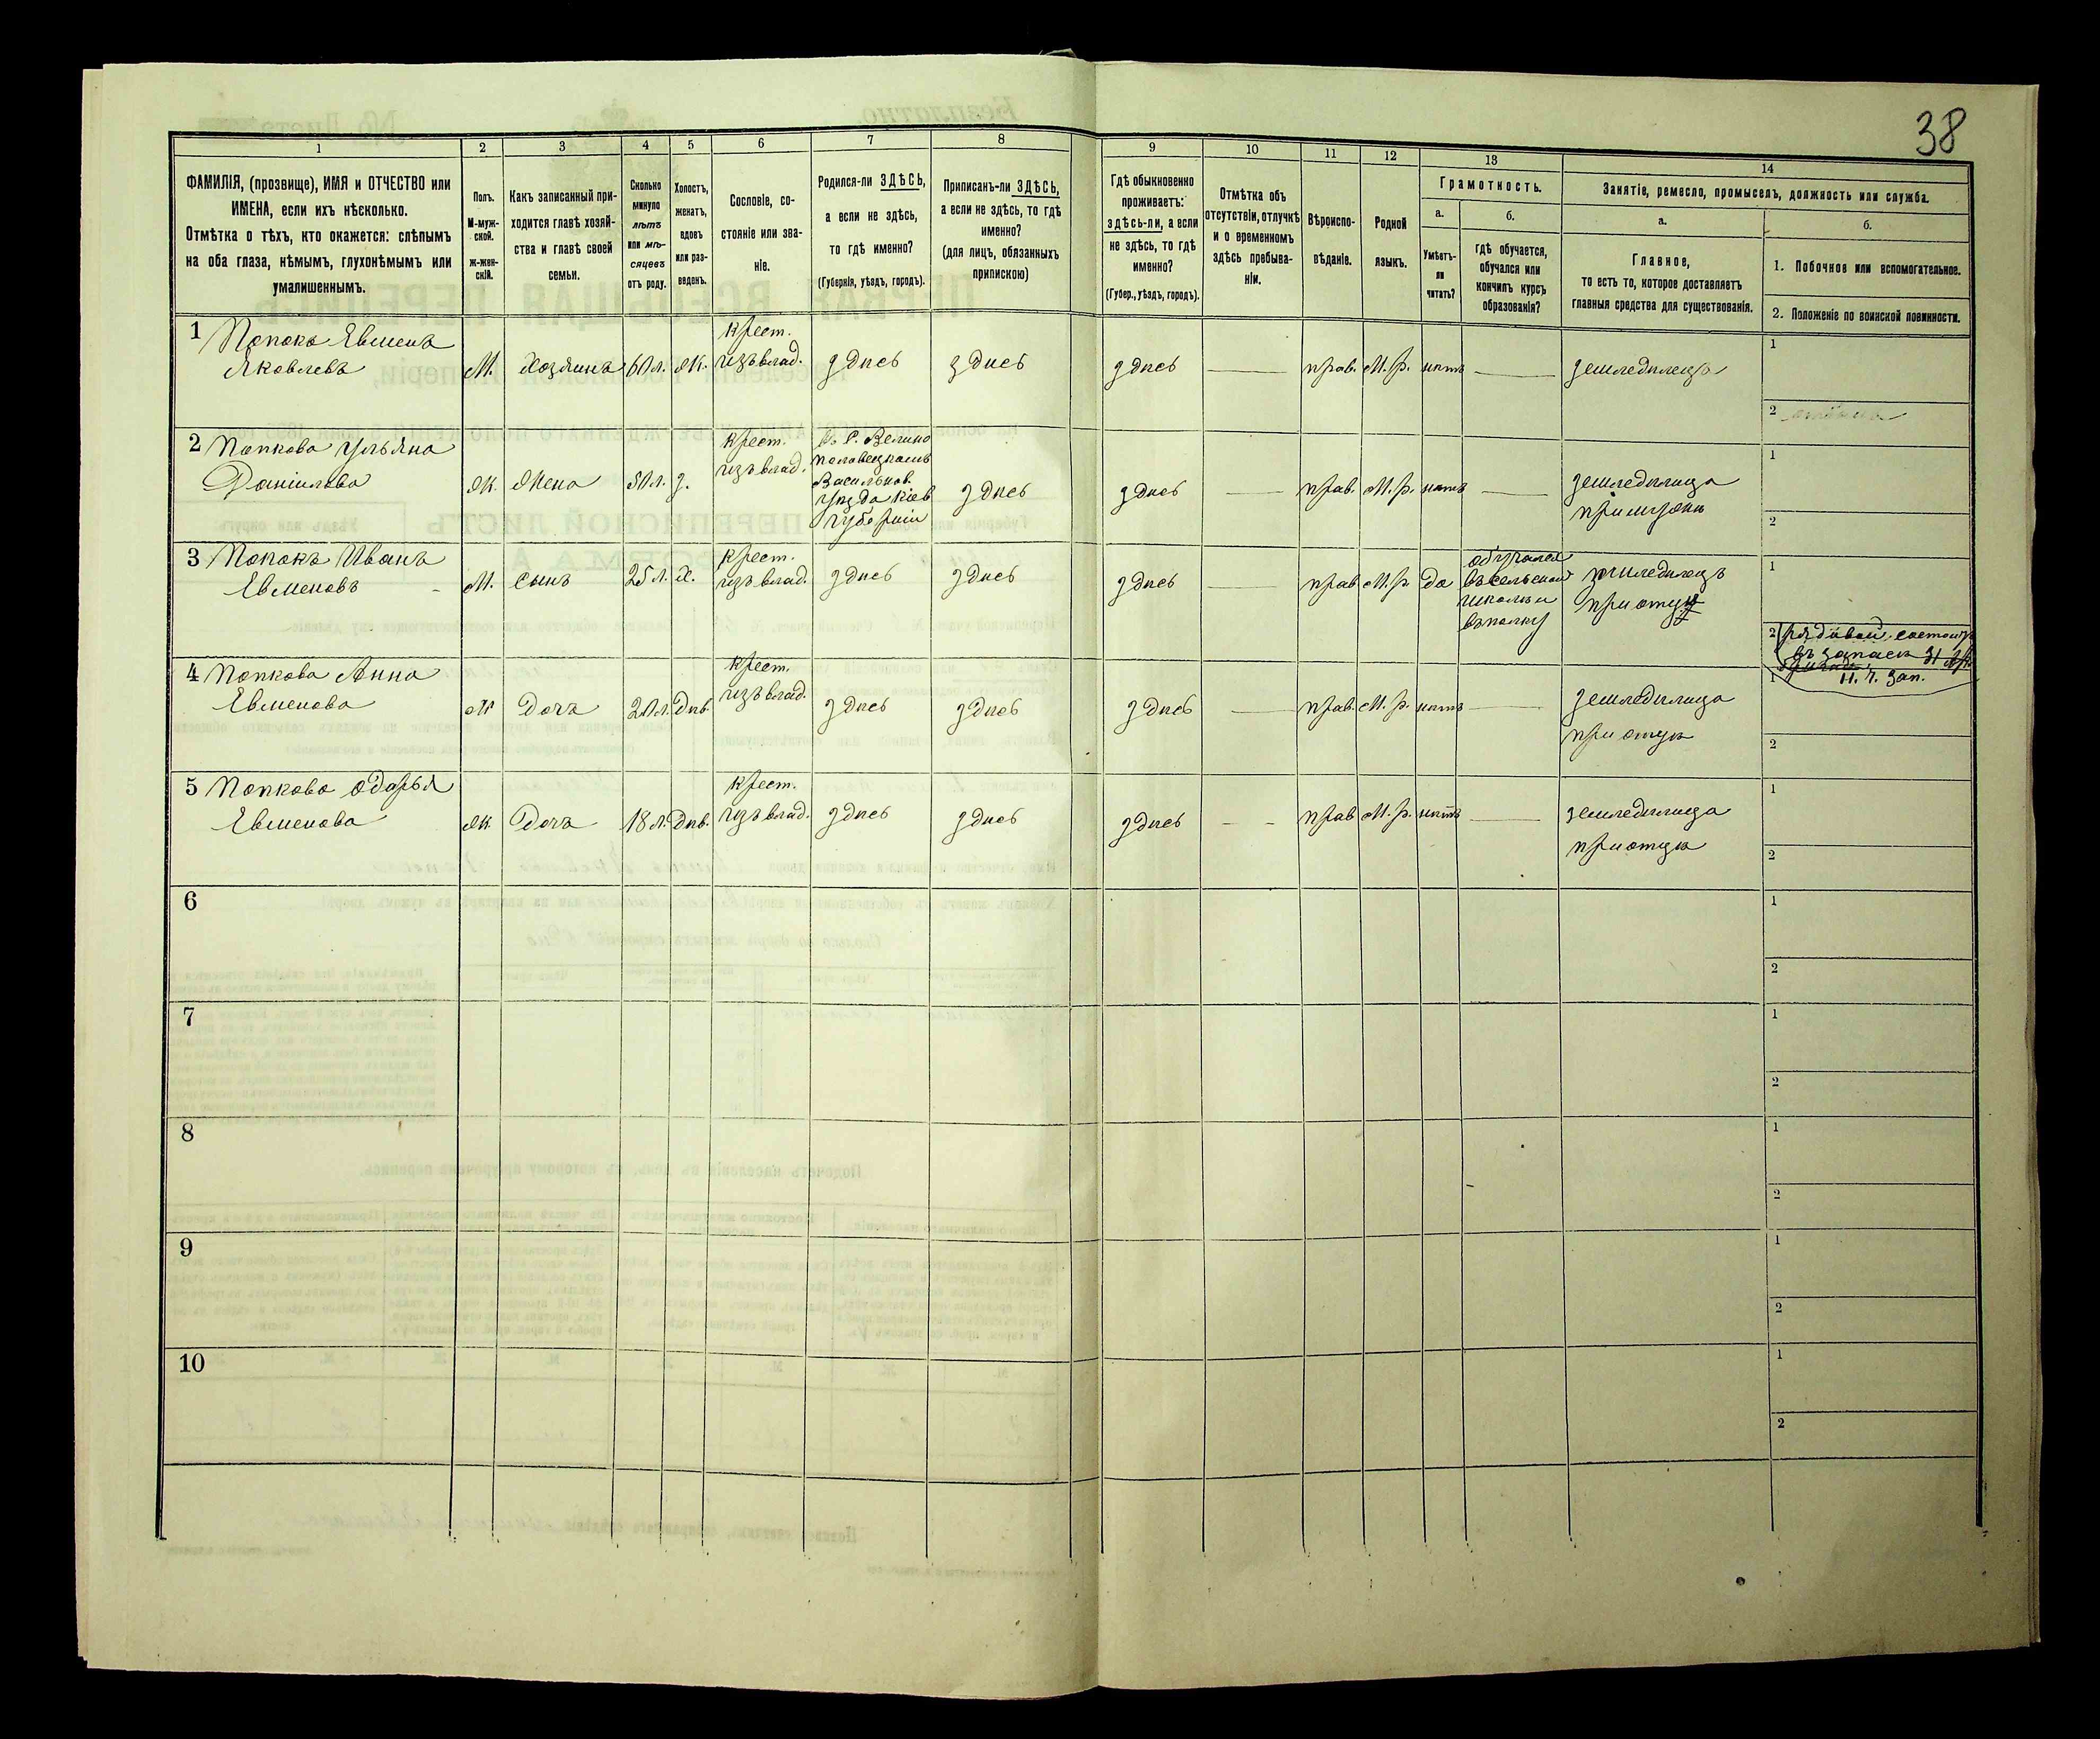 38
1
2
3
4
5
6
7
8
9
10
11
12
13
14
ФАМИЛІЯ, (прозвище), ИМЯ и ОТЧЕСТВО или
ИМЕНА, если ихъ нѣсколько.
Отмѣтка о тѣхъ, кто окажется: слѣпымъ
на оба глаза, нѣмымъ, глухонѣмымъ или
умалишеннымъ.
Полъ.
М-муж-
ской.
ж-жен-
скій.
Какъ записанный при-
ходится главѣ хозяй-
ства и главѣ своей
семьи.
Сколько
минуло
лѣтъ
или мѣ-
сяцевъ
отъ роду.
Холостъ,
женатъ,
вдовъ
или раз-
веденъ.
Сословіе, со-
стояніе или зва-
ніе.
Родился-ли ЗДѢСЬ,
а если не здѣсь,
то гдѣ именно?
(Губернія, уѣздъ, городъ).
Приписанъ-ли ЗДѢСЬ,
а если не здѣсь, то гдѣ
именно?
(для лицъ, обязанныхъ
припискою)
Гдѣ обыкновенно
проживаетъ:
здѣсь-ли, а если
не здѣсь, то гдѣ
именно?
(Губер., уѣздъ, городъ).
Отмѣтка объ
отсутствіи, отлучкѣ
и о временномъ
здѣсь пребыва-
ніи.
Вѣроиспо-
вѣданіе.
Родной
языкъ.
Грамотность.
а.
Умѣетъ-
ли
читать?
б.
гдѣ обучается,
обучался или
кончилъ курсъ
образованія?
Занятіе, ремесло, промыселъ, должность или служба.
а.
Главное,
то есть то, которое доставляетъ
главныя средства для существованія.
б.
1. Побочное или вспомогательное.
2. Положеніе по воинской повинности.
1 Попокъ Евменъ
Яковлевъ
М.
Хозяинъ
60 л.
Ж.
Крест.
изъ влад.
здѣсь
здѣсь
здѣсь
прав.
М. р.
нѣтъ
земледѣлецъ
1
2
2 Попкова Ульяна
Даніилова
Ж.
Жена
50 л.
з.
Крест.
изъ влад.
въ С. Велико
половецкомъ
Васильков.
уѣзда Кіев
губерніи
здѣсь
здѣсь
прав.
М. р.
нѣтъ
земледѣлица
при мужѣ
1
2
3 Попокъ Иванъ
Евменовъ
М.
Сынъ
25 л.
Х.
Крест.
изъ влад.
здѣсь
здѣсь
здѣсь
прав
М. р.
да
обучался
въ сельской
школѣ и
въ полку
земледѣлецъ
при отцѣ
1
2 рядовой состоитъ
въ запасѣ
Н. Ч. Зап.
4 Попкова Анна
Евменова
Ж
Дочь
20 л.
Дѣв.
Крест.
изъ влад.
здѣсь
здѣсь
здѣсь
прав.
М. р.
нѣтъ
земледѣлица
при отцѣ
1
2
5 Попкова Одарья
Евменова
Ж.
Дочь
18 л.
Дѣв.
Крест.
изъ влад.
здѣсь
здѣсь
здѣсь
прав
М. р.
нѣтъ
земледѣлица
при отцѣ
1
2
6
1
2
7
1
2
8
1
2
9
1
2
10
1
2